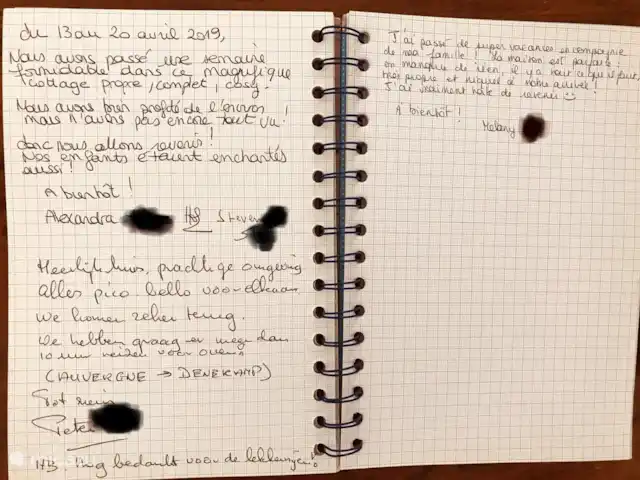 du 13 au 20 avril 2019,
Nous avons passé une semaine
formidable dans ce magnifique
cottage propre, complet, cosy.
Nous avons bien profité de l'environ,
mais n'avons pas encore tout vu.
donc nous allons revenir!
Nos enfants étaient enchantés
aussi!
A bientôt!
Alexandra Steven
Heerlijk huis, prachtige omgeving
alles pico bello voor elkaar.
We komen zeker terug.
We hebben graag er meer dan
10 uur reizen voor over.
(AUVERGNE → DENEKAMP)
Tot ziens
Peter
NB nog bedankt voor de lekkernijen!
J'ai passé de super vacances en compagnie
de ma famille! La maison est parfaite:
on manque de rien, il y a tout ce qu'il faut,
très propre et nickel à notre arrivée!
J'ai vraiment hâte de revenir ☺
A bientôt!
Mélany